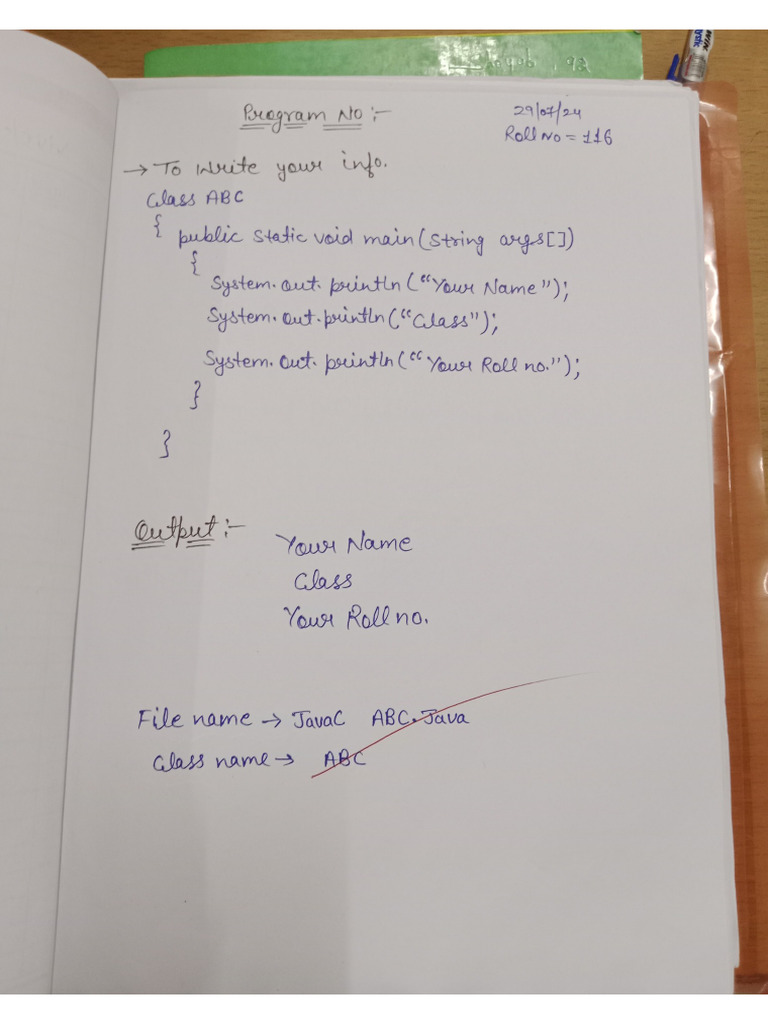 Ayub . 92
Program No :-
29/07/24
Roll No = 116
→ To write your info.
Class ABC
{ public static void main(String args[])
{
System.out.println("Your Name");
System.out.println("Class");
System.out.println("Your Roll no.");
}
}
Output :-
Your Name
Class
Your Roll no.
File name → JavaC ABC.Java
Class name → ABC